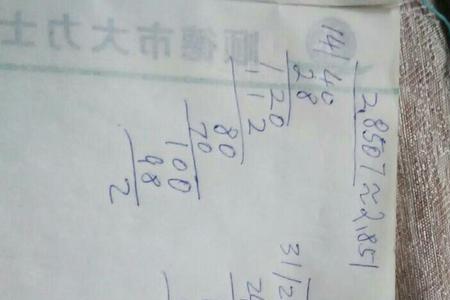 2,8507≈2,851
14/40
28
120
112
80
70
100
98
2
31/2
顺德市大力士